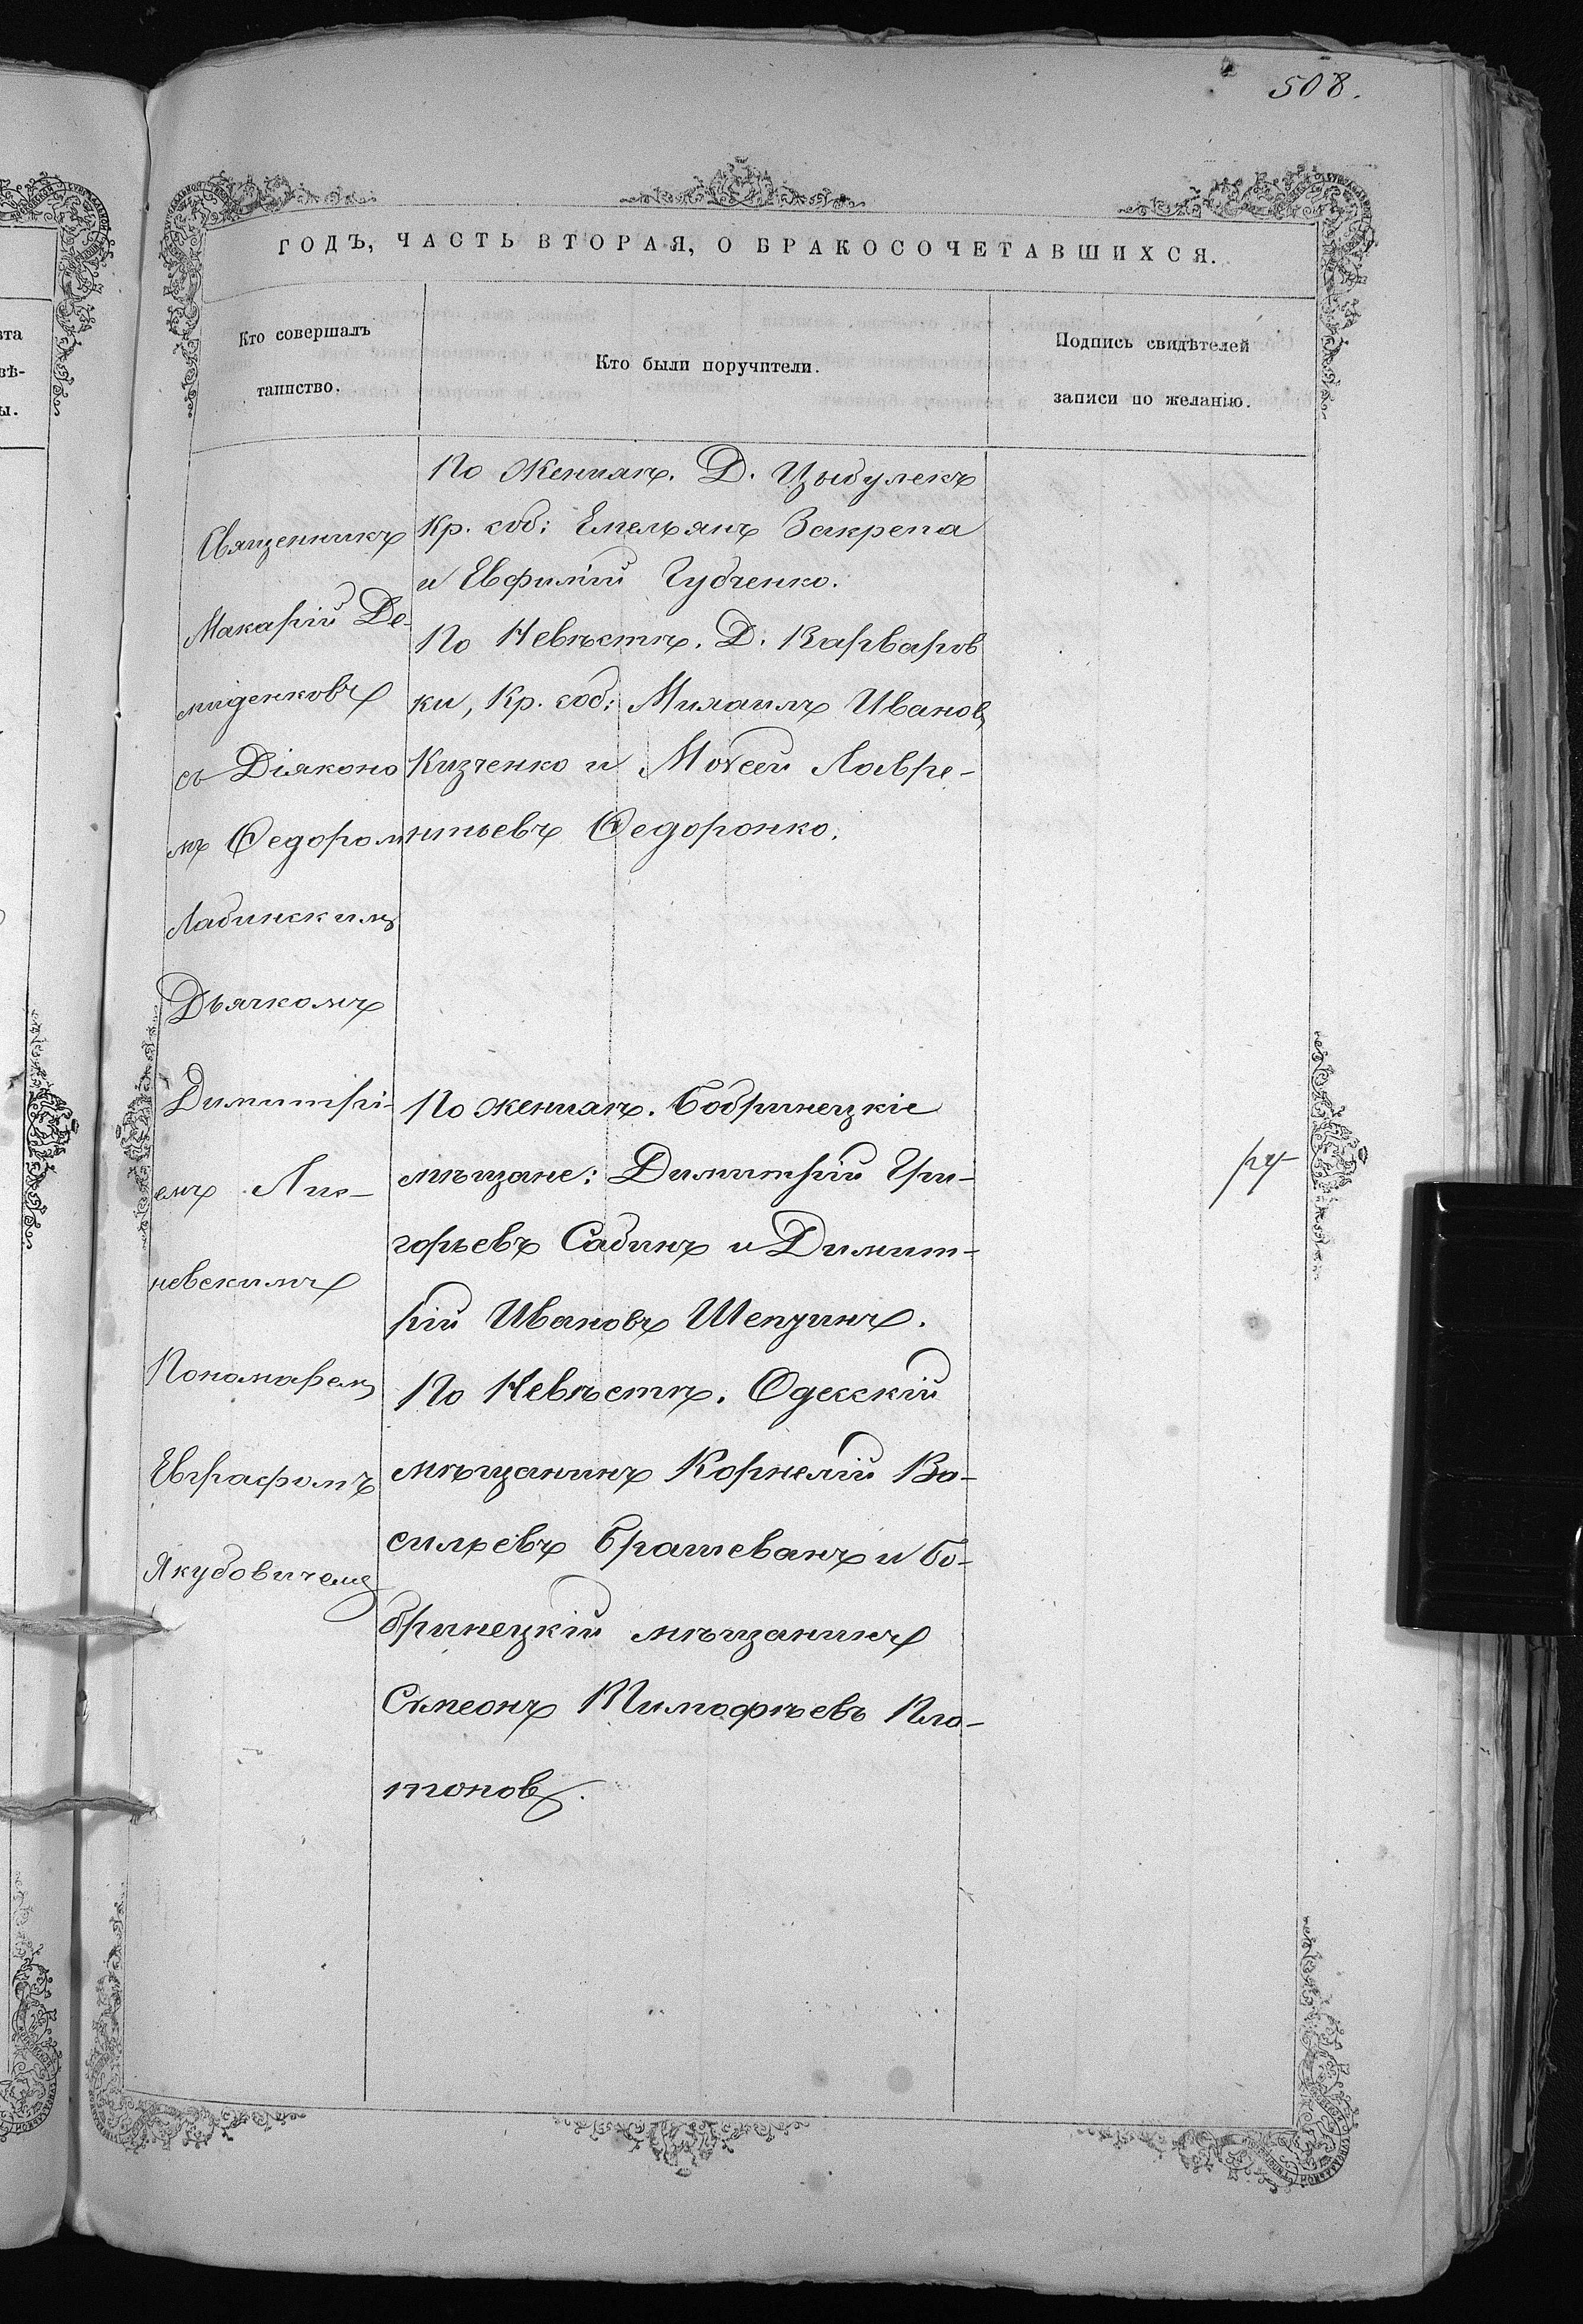 508.
ГОДЪ, ЧАСТЬ ВТОРАЯ, О БРАКОСОЧЕТАВШИХСЯ.
Кто совершалъ
таинство.
Кто были поручители.
Подпись свидѣтелей
записи по желанію.
Священникъ
Макарій Де-
миденковъ
съ Діяконо
мъ Ѳедоромъ
Лабинскимъ
Дьячкомъ
Димитрі-
емъ Лис-
невскимъ
Пономаремъ
Евграфомъ
Якубовичемъ
По Женихѣ. Д. Цыбулекъ
Кр. соб: Емельянъ Закрепа
и Евфимій Губченко.
По Невѣстѣ. Д. Варваров
ки, Кр. соб: Михаилъ Ивановъ
Кизченко и Моѵсей Лавре-
нтьевъ Ѳедоронко.
По женихѣ. Бобринецкіе
мѣщане: Димитрій Гри-
горьевъ Сабинъ и Димит-
рій Ивановъ Шепзинъ.
По Невѣстѣ. Одесскій
мѣщанинъ Корнелій Ва-
сильевъ Брашеванъ и Бо-
бринецкій мѣщанинъ
Сѵмеонъ Тимофѣевъ Пла-
тоновъ.